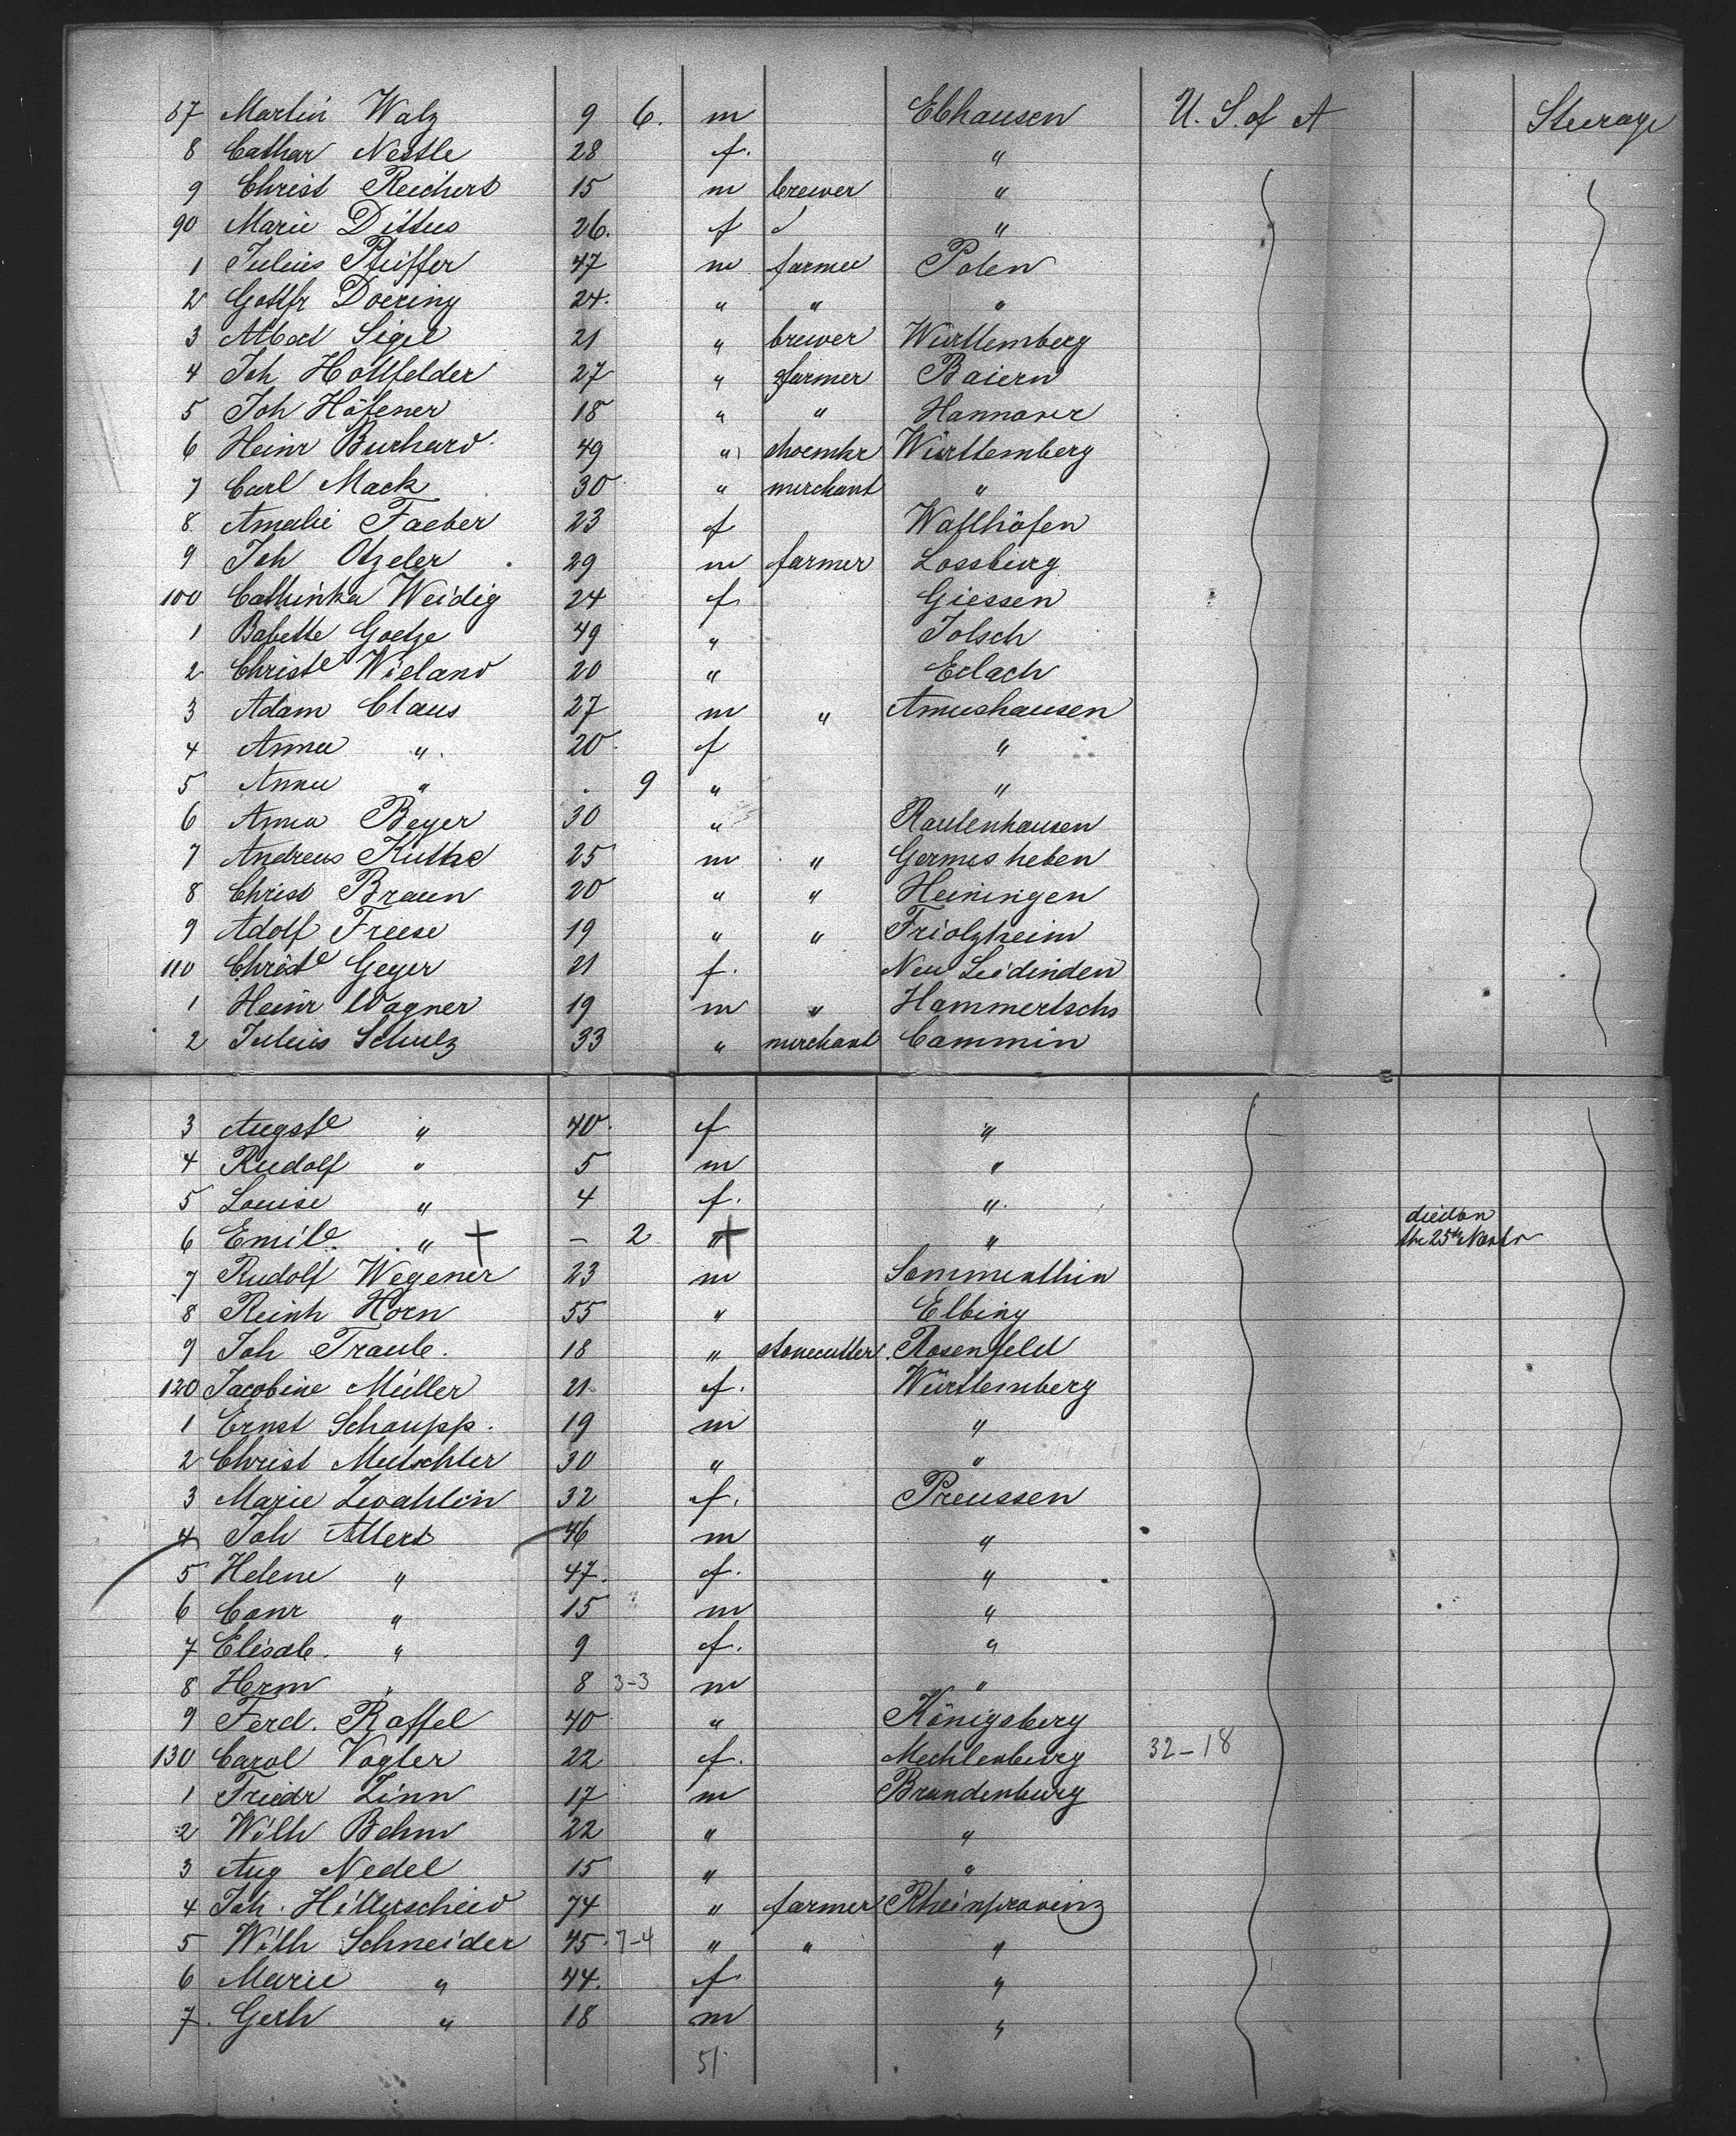 87 Martin Walz 9 6. m Ebhausen U. S. of A Steerage
8 Cathar Nestle 28 f. "
9 Christ Reichert 15 m brewer "
90 Marie Dittus 26. f "
1 Julius Pfeiffer 47 m farmer Polen
2 Gottfr Doering 24. " " "
3 Albert Sigel 21 " brewer Württemberg
4 Joh Hollfelder 27 " farmer Baiern
5 Joh Häfener 18 " " Hannover
6 Heinr Burhard 49 " shoemkr Württemberg
7 Carl Mack 30 " merchant "
8 Amalie Faeber 23 f Wallhöfen
9 Joh Otzeler 29 m farmer Lossburg
100 Cathinka Weidig 24 f Giessen
1 Babette Goetze 49 " Jolsch
2 Christe Wieland 20 " Erlach
3 Adam Claus 27 m " Amushausen
4 Anna " 20 f "
5 Anna " . 9 " "
6 Anna Beyer 30 " Rautenhausen
7 Andreas Kuthe 25 m " Germisheben
8 Christ Braun 20 " " Heiningen
9 Adolf Freese 19 " " Friolzheim
110 Christe Geyer 21 f. Neu
1 Heinr Wagner 19 m " Hammertschs
2 Julius Schulz 33 " merchant Cammin
3 Augste " 40 f "
4 Rudolf " 5 m "
5 Louise " 4 f. "
6 Emile " + – 2 " + " died on the 25th
7 Rudolf Wegener 23 m Sommenthin
8 Reinh Horn 55 " Elbing
9 Joh Traub. 18 " stonecutter Rosenfeld
120 Jacobine Müller 21 f. Württemberg
1 Ernst Schaupp. 19 m "
2 Christ Mutschler 30 " "
3 Marie Zwahlin 32 f. Preussen
4 Joh Allert 46 m "
5 Helene " 47. f. "
6 Conr " 15 m "
7 Elisab. " 9 f. "
8 Herm " 8 3-3 m "
9 Ferd. Raffel 40 " Königsberg
130 Carol Vogler 22 f. Mechlenburg 32-18
1 Friedr Zinn 17 m Brandenburg
2 Wilh Behm 22 " "
3 Aug Nedel 15 " "
4 Joh. Hillerscheid 74 " farmer Rheinprovinz
5 Wilh Schneider 45 7-4 " " "
6 Marie " 44. f "
7. Gerh " 18 m "
51